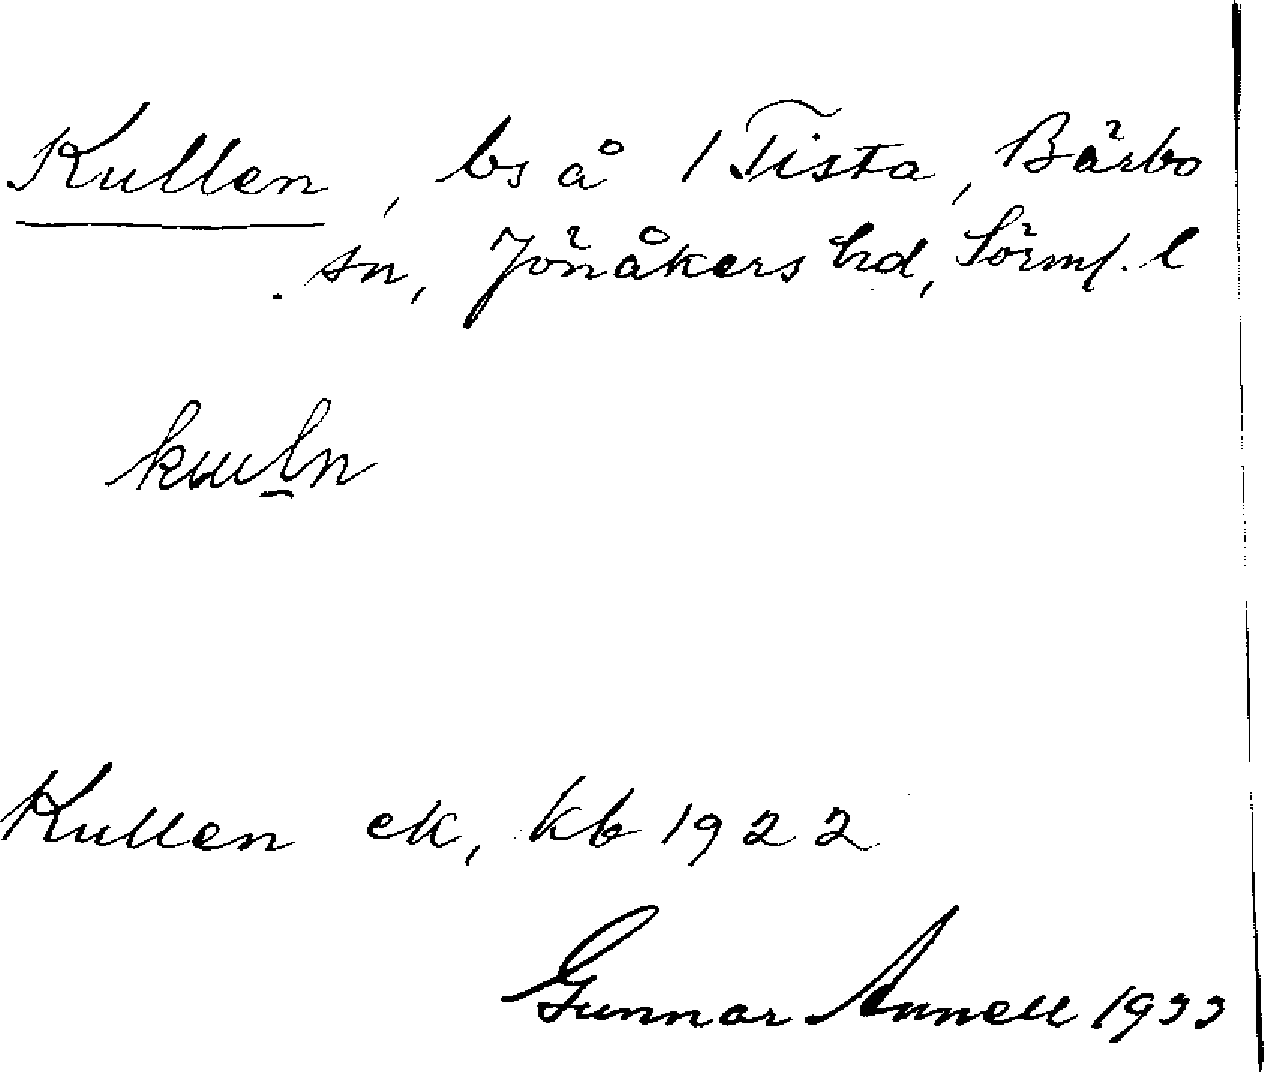 Kullen, bs å 1 Tista, Bärbo
sn, Jönåkers hd, Sörml. l
Kullen ek, kb 1922
Gunnar Annell 1933